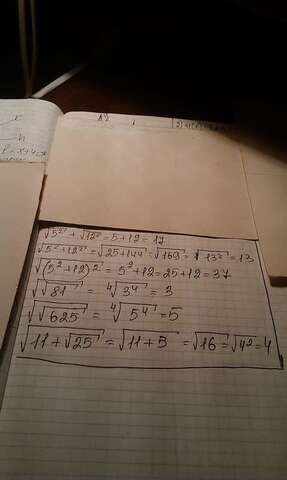 √5² + √12² = 5+12 = 17
√5²+12² = √25+144 = √169 = √13² = 13
√(5²+12)² = 5²+12 = 25+12 = 37
√√81 = ⁴√3⁴ = 3
√√625 = ⁴√5⁴ = 5
√11+√25 = √11+5 = √16 = √4² = 4